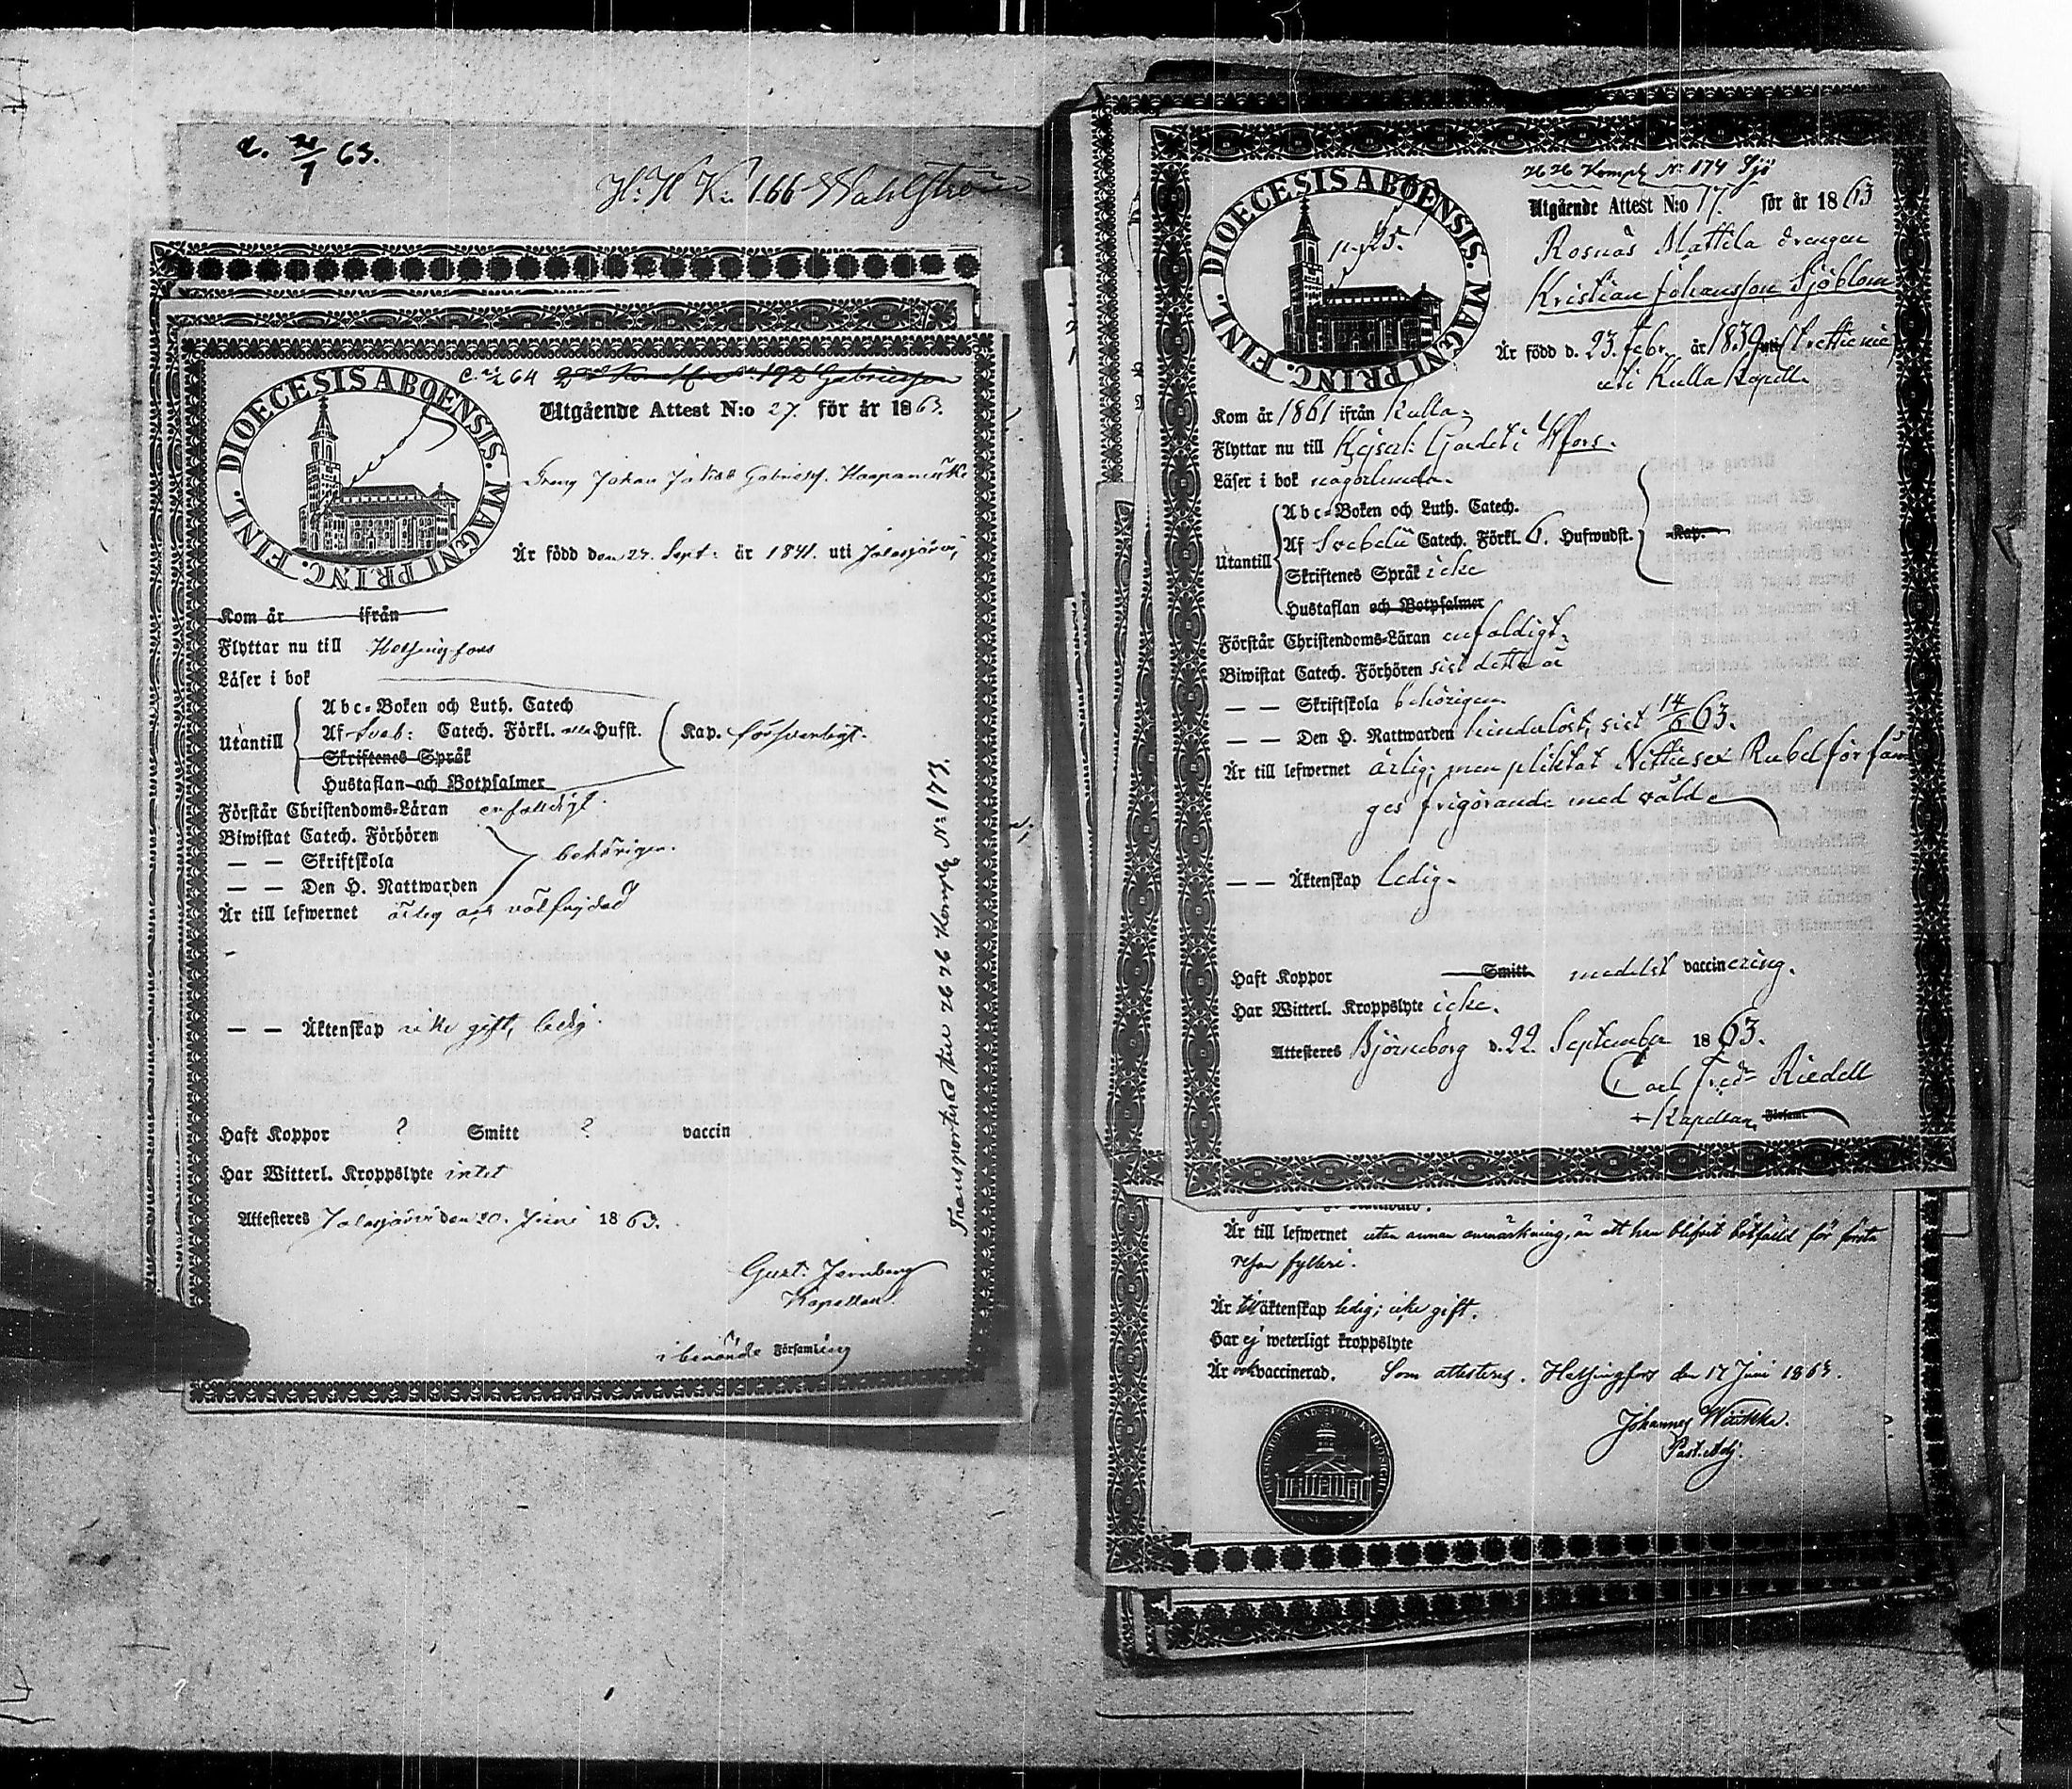 c. 21/1 63.
H: H K: 166 Wahlström
DIOECESIS ABOENSIS. MAGNI PRINC. FINL.
c. 64
Utgående Attest N:o 27. för år 1863.
Dreng Johan Jakob Gabrielss. Haapamäki
Är född den 27. Sept: år 1841. uti Jalasjärvi
Kom år ifrån
Flyttar nu till Helsingfors
Läser i bok
Utantill
Abc-Boken och Luth. Catech
Af Sveb: Catech. Förkl. alla Hufst.
Skriftenes Språk
Hustaflan och Botpsalmer
Kap. försvarligt.
Förstår Christendoms-Läran enfaldigt.
Biwistat Catech. Förhören
— — Skriftskola
— — Den H. Nattwarden
behörigen.
Är till lefwernet ärlig och välfrejdad
— — Äktenskap icke gift, ledig.
Haft Koppor ? Smitt ? vaccin
Har Witterl. Kroppslyte intet
Attesteres Jalasjärvi den 20. Juni 1863.
Gust. Jernberg
Kapellan.
i berörde Församling
Transporterad till H H Kompl N: 173.
DIOECESIS ABOENSIS. MAGNI PRINC. FINL.
p. 125.
H H Kompl N: 174 Sjö
Utgående Attest N:o 17. för år 1863
Rosnäs Mattila drengen
Kristian Johansson Sjöblom
Är född d. 23. Febr. år 1839 (trettionie)
uti Kulla Kapell.
Kom år 1861 ifrån Kulla.
Flyttar nu till Kejserl. Gardet i Hfors.
Läser i bok någorlunda.
Utantill
Abc-Boken och Luth. Catech.
Af Svebelii Catech. Förkl. 6. Hufwudst.
Skriftenes Språk icke
Hustaflan och Botpsalmer
Kap.
Förstår Christendoms-Läran enfaldigt.
Biwistat Catech. Förhören sist detta år
— — Skriftskola behörigen
— — Den H. Nattwarden hinderlöst, sist 14/6 63.
Är till lefwernet ärlig; men pliktat Nittiosex Rubel för fån
ges frigörande med våld.
— — Äktenskap ledig.
Haft Koppor Smitt medelst vaccinering.
Har Witterl. Kroppslyte icke.
Attesteres Björneborg d. 22. September 1863.
Carl Fredr Riedell
Kapellan Församl
Är till lefwernet utan annan anmärkning, än att han blifvit bötfälld för första
resan fylleri.
Är till äktenskap ledig; icke gift.
Har ej weterligt kroppslyte
Är vaccinerad. Som attesteres. Helsingfors den 17 Juni 1863.
Johannes
Past. Adj.